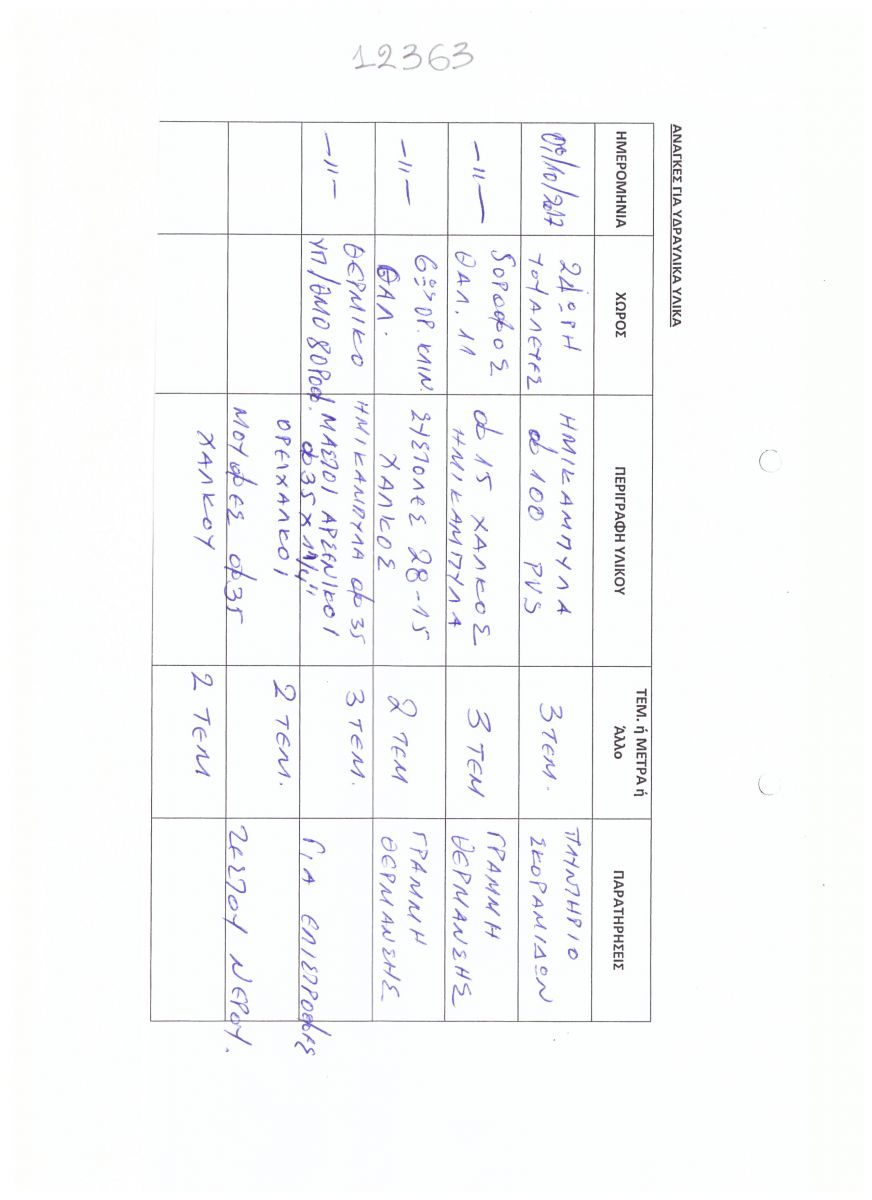 12363
ΑΝΑΓΚΕΣ ΓΙΑ ΥΔΡΑΥΛΙΚΑ ΥΛΙΚΑ
ΗΜΕΡΟΜΗΝΙΑ
ΧΩΡΟΣ
ΠΕΡΙΓΡΑΦΗ ΥΛΙΚΟΥ
ΤΕΜ. ή ΜΕΤΡΑ ή
Άλλο
ΠΑΡΑΤΗΡΗΣΕΙΣ
/10/2017
24ΩΡΗ
ΤΟΥΑΛΕΤΕΣ
ΗΜΙΚΑΜΠΥΛΑ
Φ 100 PVS
3 ΤΕΜ.
ΠΛΥΝΤΗΡΙΟ
ΣΚΟΡΑΜΙΔΩΝ
-〃-
5ΟΡΟΦΟΣ
ΘΑΛ. 11
Φ 15 ΧΑΛΚΟΣ
ΗΜΙΚΑΜΠΥΛΑ
3 ΤΕΜ
ΓΡΑΜΜΗ
ΘΕΡΜΑΝΣΗΣ
-〃-
ΚΛΙΝ.
ΘΑΛ.
ΣΥΣΤΟΛΕΣ 28-15
ΧΑΛΚΟΣ
2 ΤΕΜ
ΓΡΑΜΜΗ
ΘΕΡΜΑΝΣΗΣ
-〃-
ΘΕΡΜΙΚΟ
ΥΠ/ΘΜΟ 8ΟΡΟΦ.
ΗΜΙΚΑΜΠΥΛΑ Φ 35
ΜΑΣΤΟΙ ΑΡΣΕΝΙΚΟΙ
Φ 35 Χ 1 1/4"
3 ΤΕΜ.
ΟΡΕΙΧΑΛΚΟΙ
2 ΤΕΜ.
ΓΙΑ ΕΠΙΣΤΡΟΦΕΣ
ΜΟΥΦΕΣ Φ35
ΧΑΛΚΟΥ
2 ΤΕΜ
ΖΕΣΤΟΥ ΝΕΡΟΥ.